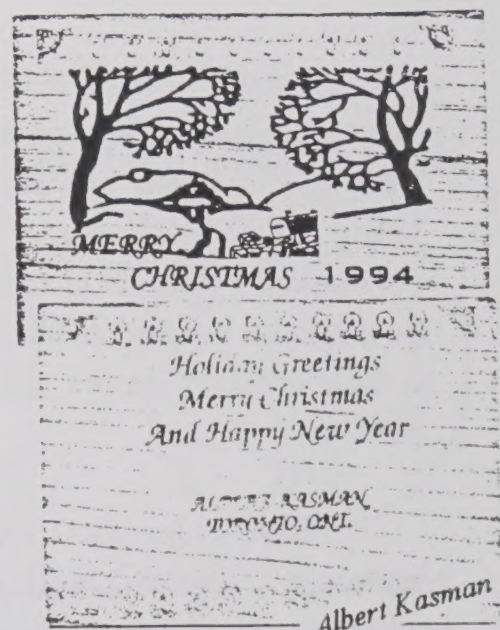 MERRY
CHRISTMAS 1994
Holiday Greetings
Merry Christmas
And Happy New Year
ALBERT KASMAN
TORONTO, ONT.
Albert Kasman